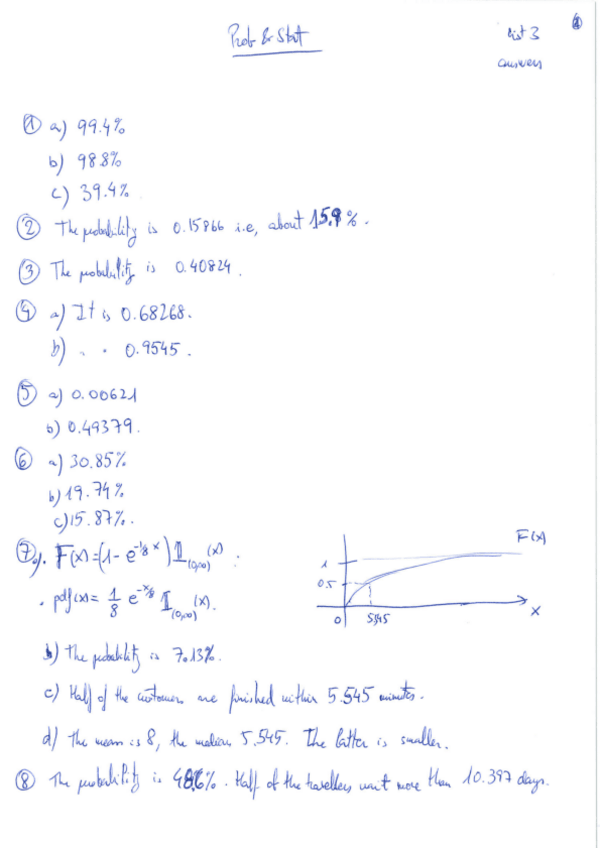 Prob & Stat
List 3
answers
① a) 99.4%
b) 98.8%
c) 39.4%
② The probability is 0.15866 i.e, about 15.9%.
③ The probability is 0.40824.
④ a) It is 0.68268.
b) " " 0.9545.
⑤ a) 0.00621
b) 0.49379.
⑥ a) 30.85%
b) 19.74%
c) 15.87%.
⑦ a). F(x)=(1-e^{-1/8 x}) 𝟙_{(0,∞)}(x).
F(x)
1
0.5
0 5.545 x
• pdf(x)= 1/8 e^{-x/8} 𝟙_{(0,∞)}(x).
b) The probability is 7.13%.
c) Half of the customers are finished within 5.545 minutes.
d) The mean is 8, the median 5.545. The latter is smaller.
⑧ The probability is 48.6%. Half of the travellers wait more than 10.397 days.